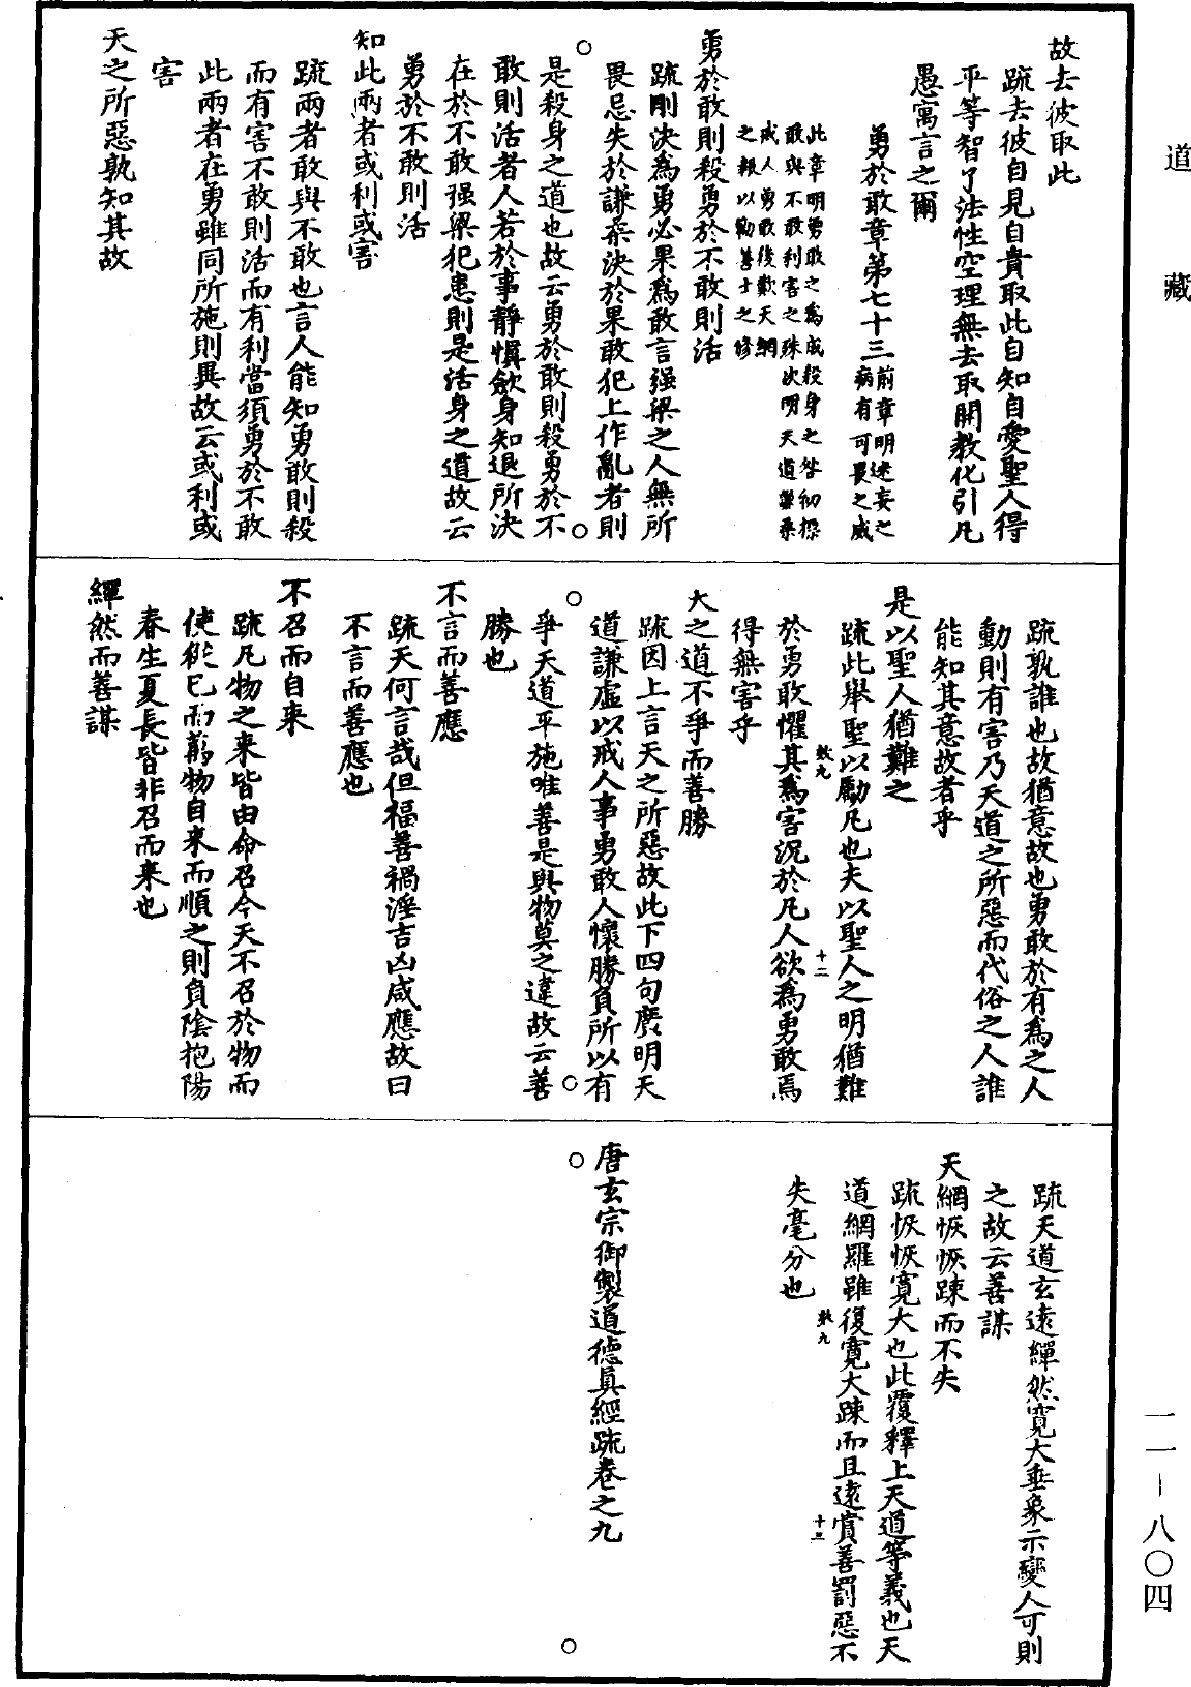 道藏
故去彼取此
疏去彼自見自貴取此自知自愛聖人得
平等智了法性空理無去取開教化引凡
愚寓言之爾
勇於敢章第七十三
前章明迷妄之
病有可畏之威
此章明勇敢之爲成殺身之咎初標
敢與不敢利害之殊次明天道謙柔
戒人勇敢後歎天網
之報以勸善士之修
勇於敢則殺勇於不敢則活
疏剛決爲勇必果爲敢言强梁之人無所
畏忌失於謙柔決於果敢犯上作亂者則
是殺身之道也故云勇於敢則殺勇於不
敢則活者人若於事靜愼歛身知退所決
在於不敢强梁犯患則是活身之道故云
勇於不敢則活
知此兩者或利或害
疏兩者敢與不敢也言人能知勇敢則殺
而有害不敢則活而有利當須勇於不敢
此兩者在勇雖同所施則異故云或利或
害
天之所惡孰知其故
疏孰誰也故猶意故也勇敢於有爲之人
動則有害乃天道之所惡而代俗之人誰
能知其意故者乎
是以聖人猶難之
疏此舉聖以勵凡也夫以聖人之明猶難
敕九
十二
於勇敢懼其爲害況於凡人欲爲勇敢焉
得無害乎
天之道不爭而善勝
疏因上言天之所惡故此下四句廣明天
道謙虛以戒人事勇敢人懷勝負所以有
爭天道平施唯善是與物莫之違故云善
勝也
不言而善應
疏天何言哉但福善禍淫吉凶咸應故曰
不言而善應也
不召而自來
疏凡物之來皆由命召今天不召於物而
使從己而萬物自來而順之則負陰抱陽
春生夏長皆非召而來也
繟然而善謀
疏天道玄遠繟然寬大垂象示變人可則
之故云善謀
天網恢恢踈而不失
疏恢恢寬大也此覆釋上天道等義也天
道網羅雖復寬大踈而且遠賞善罰惡不
敕九
十三
失毫分也
唐玄宗御製道德眞經疏卷之九
一一－八〇四